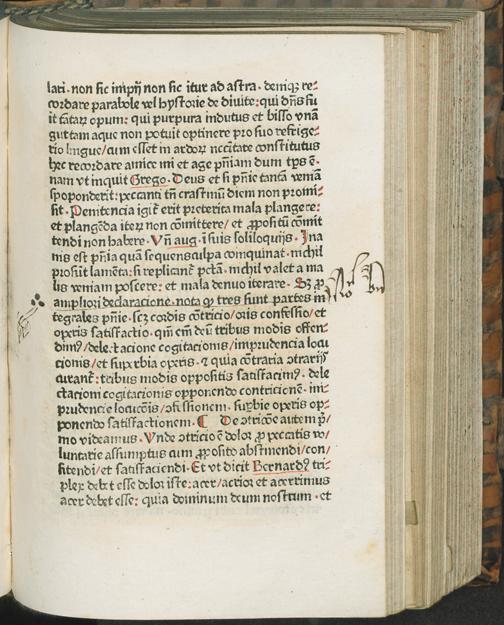 lari · non sic impij non sic itur ad astra · deniqꝫ re⸗
cordare parabole vel hystorie de diuite: qui dn̄s fu
it tātaꝝ opum: qui purpura indutus et bisso vnā
guttam aque non potuit optinere pro suo refrige⸗
rio lingue/ cum esset in ardoꝝ nccītate constitutus
hec recordare amice mi et age pn̄iam dum tp̄s ē ·
nam vt inquit Grego · Deus et si pn̄ie tanta veniā
spoponderit: peccanti tn̄ crastinū diem non promi⸗
sit · Penitencia igit᷑ erit preterita mala plangere:
et plangēda iteꝝ non cōmittere/ et ꝓpositū cōmit
tendi non habere · Vn̄ aug · ī suis soliloquijs · Ina
nis est pn̄ia quā sequens culpa coinquinat · nichil
prosūt lamēta: si replicant᷑ pctā · nichil valet a ma
lis veniam poscere: et mala denuo iterare · Sꝫ ꝓ
ampliori declaracione · nota ꝙ tres sunt partes in
tegrales pn̄ie · scꝫ cordis cōtricio/ oris confessio/ et
operis satisfactio · qm̄ em̄ deū tribus modis offen⸗
dimꝰ/ delectacione cogitacionis/ imprudencia locu
cionis/ et supꝛbia operis · ⁊ quia cōtraria ↄtrarijs
curant᷑: tribus modis oppositis satisfacimꝰ · dele
ctacioni cogitacionis opponendo contricionē · im⸗
prudencie locucōis/ ↄfessionem · supbie operis op⸗
ponendo satisfactionem · ⸿ De ↄtricōe autem p̄⸗
mo videamus · Vnde ↄtricio ē dolor ꝓ peccatis vo/
luntarie assumptus cum ꝓposito abstinendi/ con/
fitendi/ et satisfaciendi · Et vt dicit Bernardꝰ tri⸗
plex debet esse dolor iste: acer/ acrior et acerrimus
acer debet esse: quia dominum deum nostrum · et